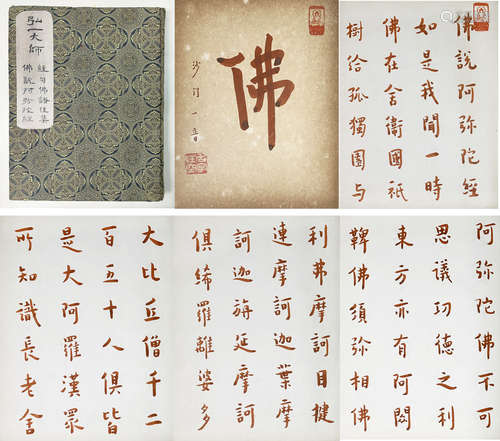 弘一大師
經句佛語佳集
佛說阿弥陀經
佛
沙门一音
佛說阿弥陀經
如是我聞一時
佛在舍衞國祇
樹給孤獨園与
大比丘僧千二
百五十人俱皆
是大阿羅漢眾
所知識長老舍
利弗摩訶目揵
連摩訶迦葉摩
訶迦旃延摩訶
俱絺羅離婆多
阿弥陀佛不可
思議功德之利
東方亦有阿閦
鞞佛須弥相佛